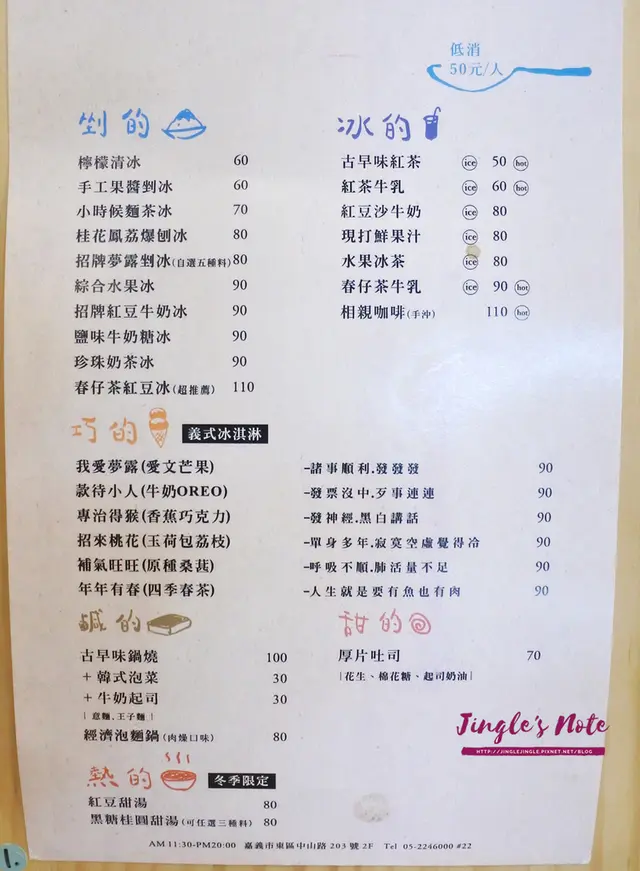 低消
50元/人
剉的
檸檬清冰 60
手工果醬剉冰 60
小時候麵茶冰 70
桂花鳳荔爆刨冰 80
招牌夢露剉冰(自選五種料) 80
綜合水果冰 90
招牌紅豆牛奶冰 90
鹽味牛奶糖冰 90
珍珠奶茶冰 90
春仔茶紅豆冰(超推薦) 110
冰的
古早味紅茶 ice 50 hot
紅茶牛乳 ice 60 hot
紅豆沙牛奶 ice 80
現打鮮果汁 ice 80
水果冰茶 ice 80
春仔茶牛乳 ice 90 hot
相親咖啡(手沖) 110 hot
巧的 義式冰淇淋
我愛夢露(愛文芒果) -諸事順利.發發發 90
款待小人(牛奶OREO) -發票沒中.歹事連連 90
專治得猴(香蕉巧克力) -發神經.黑白講話 90
招來桃花(玉荷包荔枝) -單身多年.寂寞空虛覺得冷 90
補氣旺旺(原種桑葚) -呼吸不順.肺活量不足 90
年年有春(四季春茶) -人生就是要有魚也有肉 90
鹹的
古早味鍋燒 100
+韓式泡菜 30
+牛奶起司 30
|意麵.王子麵|
經濟泡麵鍋(肉燥口味) 80
甜的
厚片吐司 70
|花生、棉花糖、起司奶油|
熱的 冬季限定
紅豆甜湯 80
黑糖桂圓甜湯(可任選三種料) 80
AM 11:30-PM20:00 嘉義市東區中山路 203 號 2F Tel 05-2246000 #22
Jingle's Note
HTTP://JINGLEJINGLE.PIXNET.NET/BLOG
1.